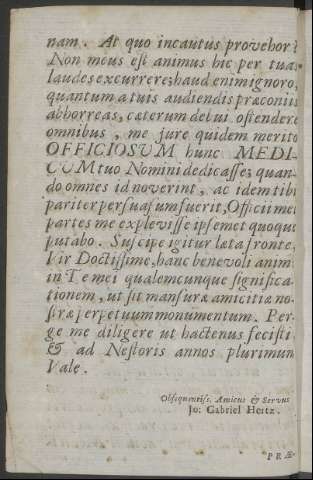 nam. At quo incautus provehor?
Non meus est animus hic per tuas
laudes excurrere; haud enim ignoro,
quantum a tuis audiendis præconiis
abhorreas, cæterum delui ostendere
omnibus, me jure quidem merito
OFFICIOSUM hunc MEDI-
CUM tuo Nomini dedicasse; quan-
do omnes id noverint, ac idem tibi
pariter persuasum fuerit, Officii mei
partes me explevisse ipsemet quoque
putabo. Suscipe igitur læta fronte,
Vir Doctissime, hanc benevoli animi
in Te mei qualemcunque significa-
tionem, ut sit mansuræ amicitiæ no-
stræ perpetuum monumentum. Per-
ge me diligere ut hactenus fecisti
& ad Nestoris annos plurimum
Vale.
Obsequentiss. Amicus & Servus
Jo: Gabriel Hertz.
PRÆ-